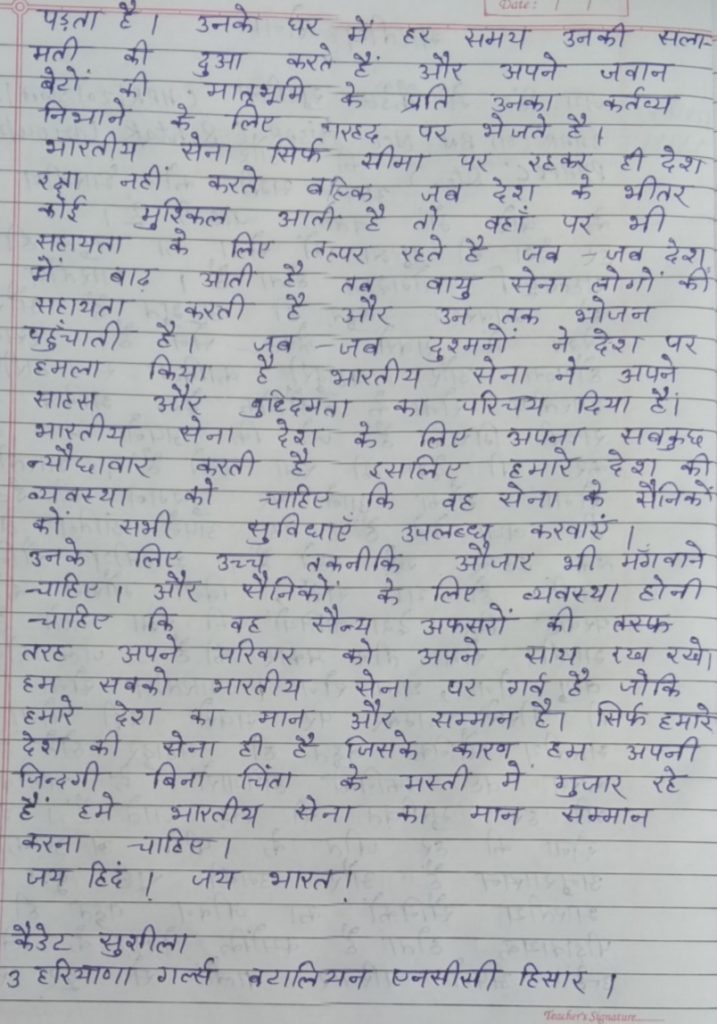 Date:
पड़ता है। उनके घर में हर समय उनकी सला-
मती की दुआ करते हैं और अपने जवान
बेटों की मातृभूमि के प्रति उनका कर्तव्य
निभाने के लिए सरहद पर भेजते है।
भारतीय सेना सिर्फ सीमा पर रहकर ही देश
रक्षा नहीं करते बल्कि जब देश के भीतर
कोई मुश्किल आती है तो वहाँ पर भी
सहायता के लिए तत्पर रहते है जब - जब देश
में बाढ़ आती है तब वायु सेना लोगों की
सहायता करती है और उन तक भोजन
पहुँचाती है। जब - जब दुश्मनों ने देश पर
हमला किया है भारतीय सेना ने अपने
साहस और बुद्दिमता का परिचय दिया है।
भारतीय सेना देश के लिए अपना सबकुछ
न्यौछावार करती है इसलिए हमारे देश की
व्यवस्था को चाहिए कि वह सेना के सैनिकों
कों सभी सुविधाएँ उपलब्ध करवाएँ।
उनके लिए उच्च तकनीकि औजार भी मँगवाने
चाहिए। और सैनिकों के लिए व्यवस्था होनी
चाहिए कि वह सैन्य अफसरों की तरफ
तरह अपने परिवार को अपने साथ रख रखे।
हम सबको भारतीय सेना पर गर्व है जोकि
हमारे देश का मान और सम्मान है। सिर्फ हमारे
देश की सेना ही है जिसके कारण हम अपनी
जिन्दगी बिना चिंता के मस्ती में गुजार रहे
हैं हमे भारतीय सेना का मान सम्मान
करना चाहिए।
जय हिदं। जय भारत।
कैडेट सुशीला
3 हरियाणा गर्ल्स बटालियन एनसीसी हिसार।
Teacher's Signature